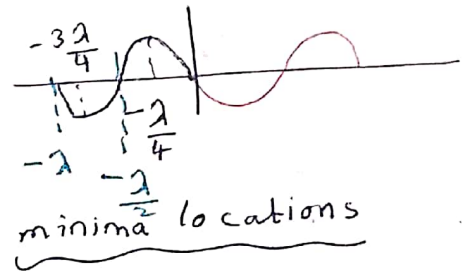 -3λ/4
-λ/4
-λ
-λ/2
minima locations